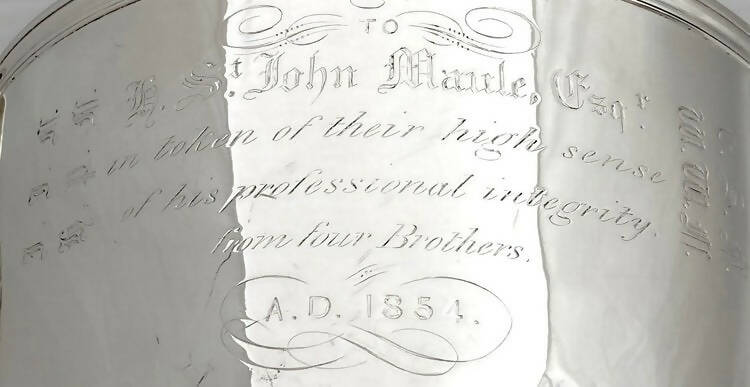 TO
H. St. John Maule, Esqr.
in token of their high sense
of his professional integrity.
from four Brothers.
A.D. 1854.